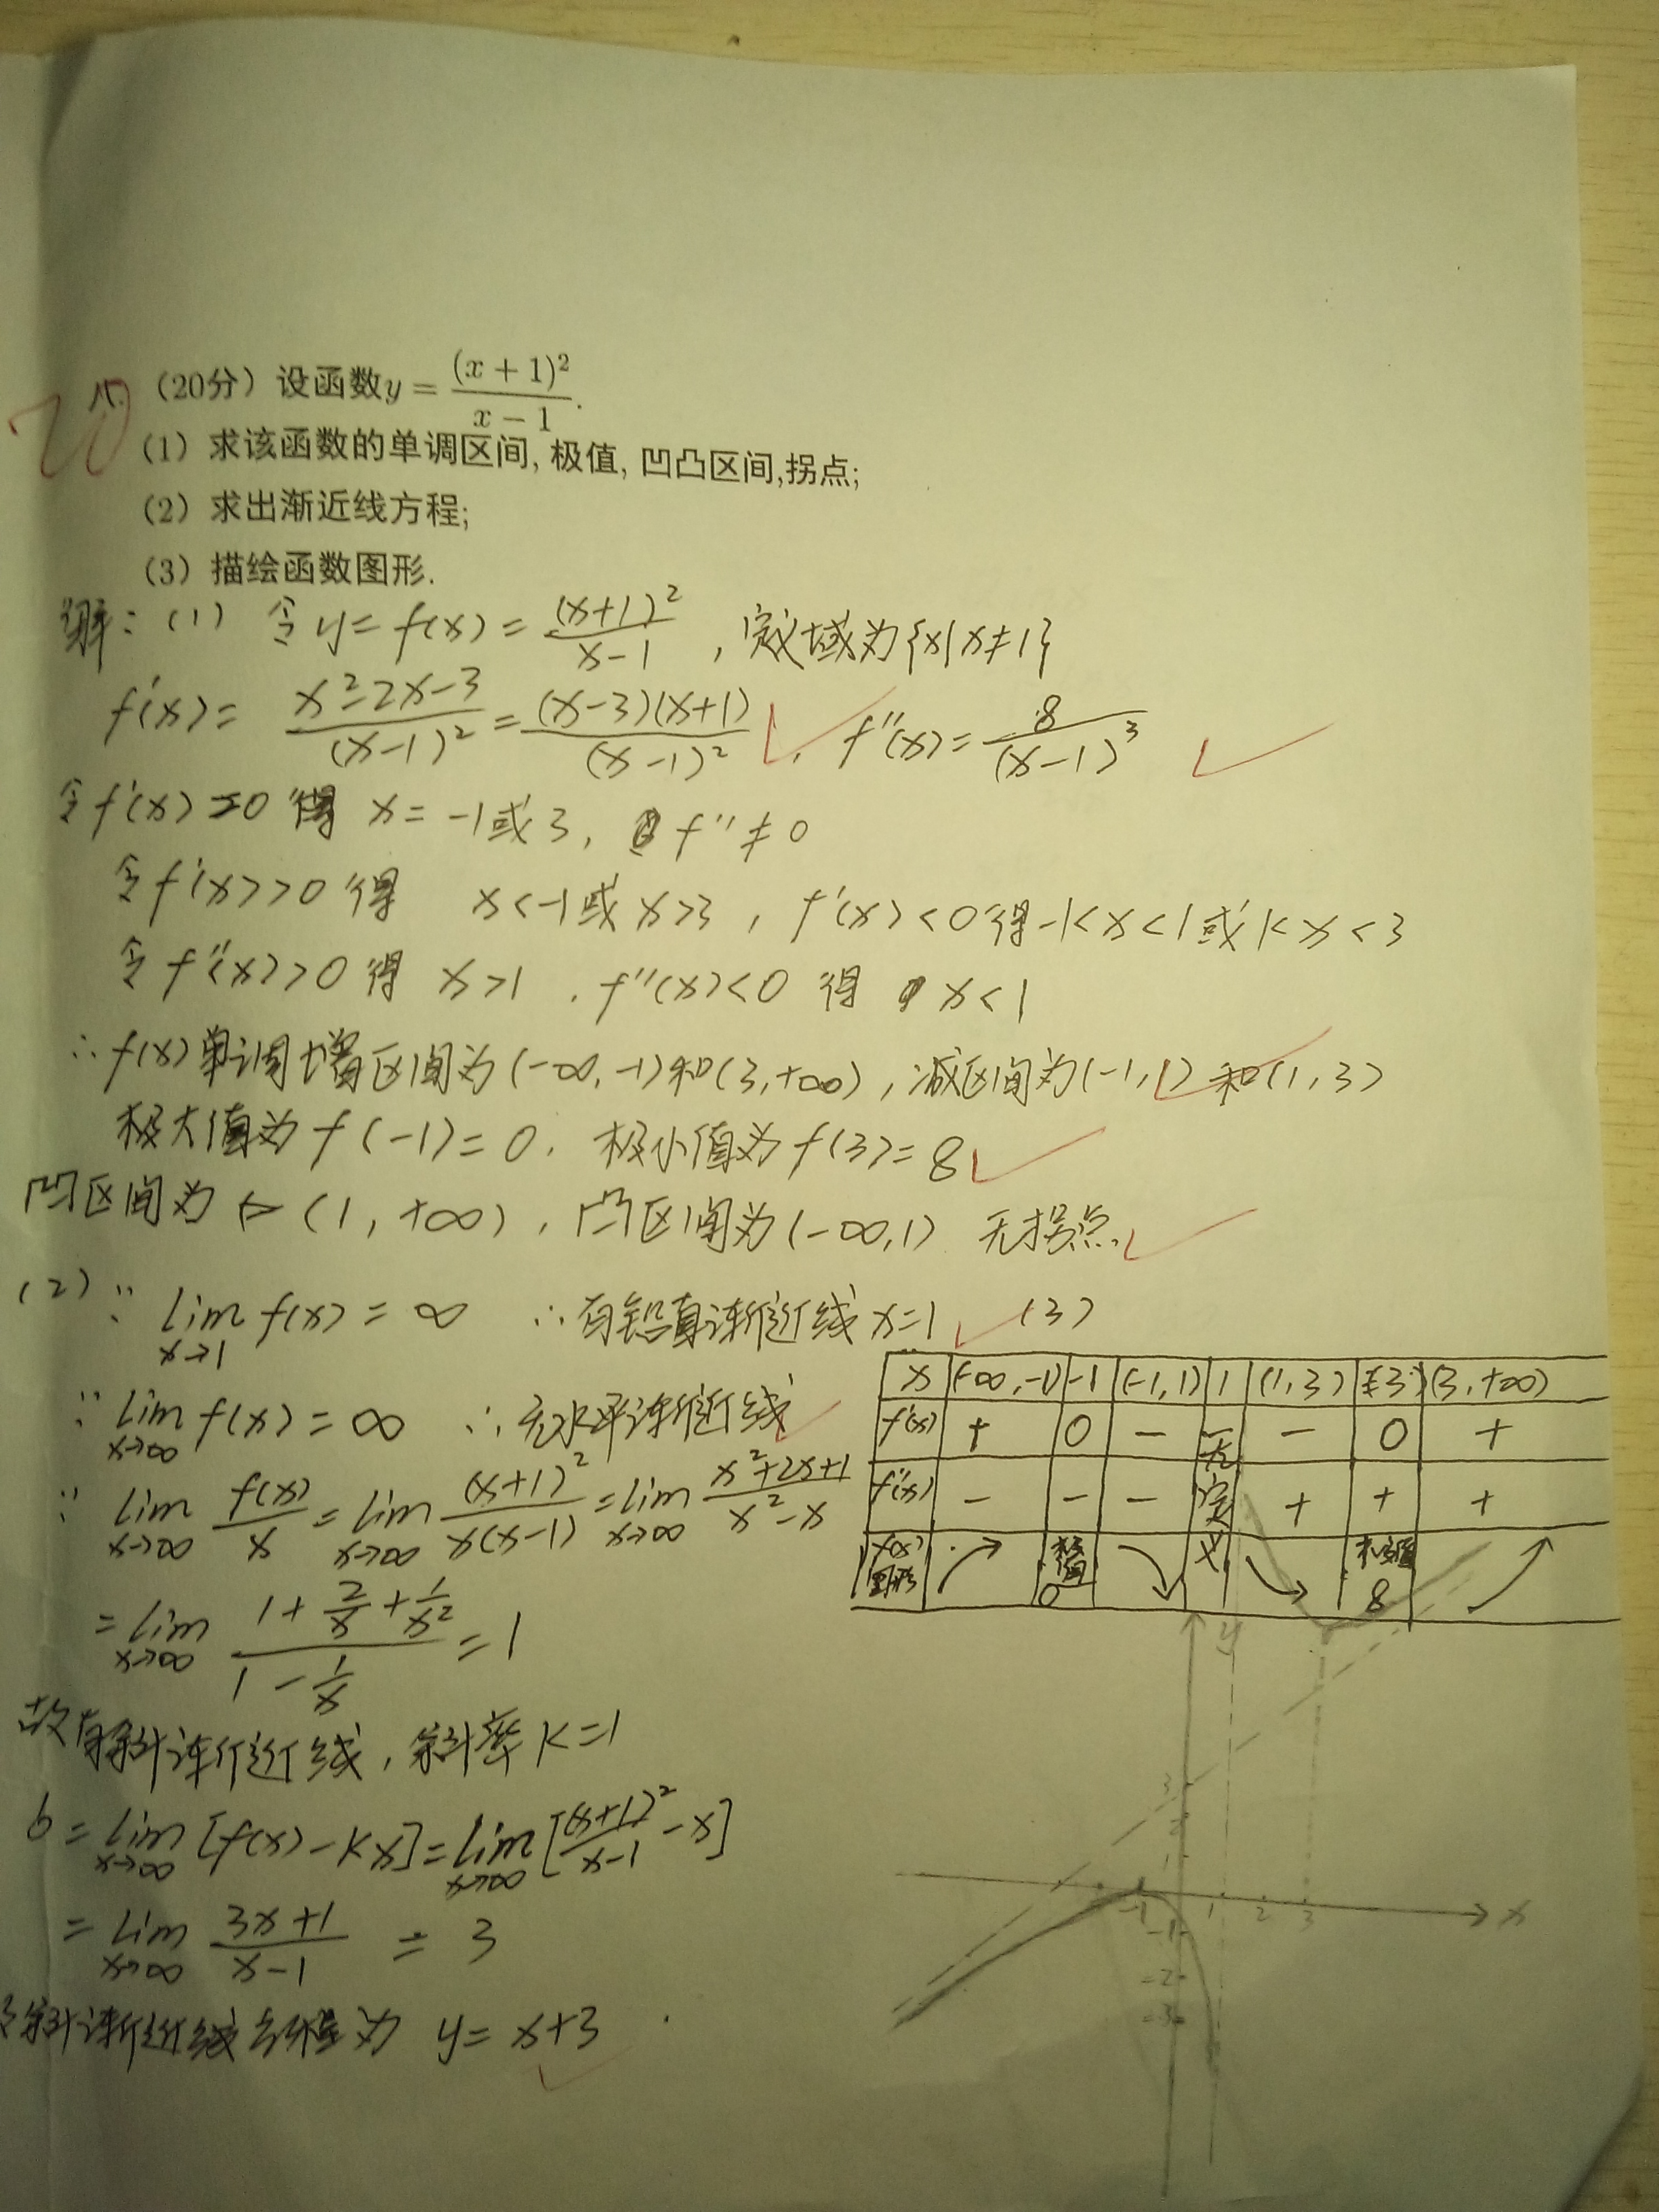 20
八. (20分) 设函数y = (x + 1)² / (x − 1).
(1) 求该函数的单调区间, 极值, 凹凸区间,拐点;
(2) 求出渐近线方程;
(3) 描绘函数图形.
解: (1) 令 y = f(x) = (x+1)² / (x-1) , 定义域为{x|x≠1}
f'(x) = (x²-2x-3) / (x-1)² = (x-3)(x+1) / (x-1)² , f''(x) = 8 / (x-1)³
令f'(x)=0 得 x = -1或3, f'' ≠ 0
令f'(x)>0 得 x<-1或x>3, f'(x)<0得-1<x<1或1<x<3
令f''(x)>0 得 x>1 , f''(x)<0 得 x<1
∴ f(x)单调增区间为(-∞,-1)和(3,+∞), 减区间为(-1,1)和(1,3)
极大值为f(-1)=0, 极小值为f(3)=8
凹区间为 (1, +∞), 凸区间为(-∞,1) 无拐点
(2) ∵ lim x→1 f(x) = ∞ ∴ 有铅直渐近线 x=1
∵ lim x→∞ f(x) = ∞ ∴ 无水平渐近线
∵ lim x→∞ f(x)/x = lim x→∞ (x+1)² / x(x-1) = lim x→∞ (x²+2x+1) / (x²-x)
= lim x→∞ (1 + 2/x + 1/x²) / (1 - 1/x) = 1
故有斜渐近线, 斜率 k=1
b = lim x→∞ [f(x)-kx] = lim x→∞ [(x+1)²/(x-1) - x]
= lim x→∞ (3x+1)/(x-1) = 3
斜渐近线方程为 y = x+3
(3)
x (-∞,-1) -1 (-1,1) 1 (1,3) 3 (3,+∞)
f'(x) + 0 − 无 − 0 +
f''(x) − − − 定 + + +
f(x)图形 极值0 义 极值8
y
3
2
1
-1 1 2 3 x
-1
-2
-3